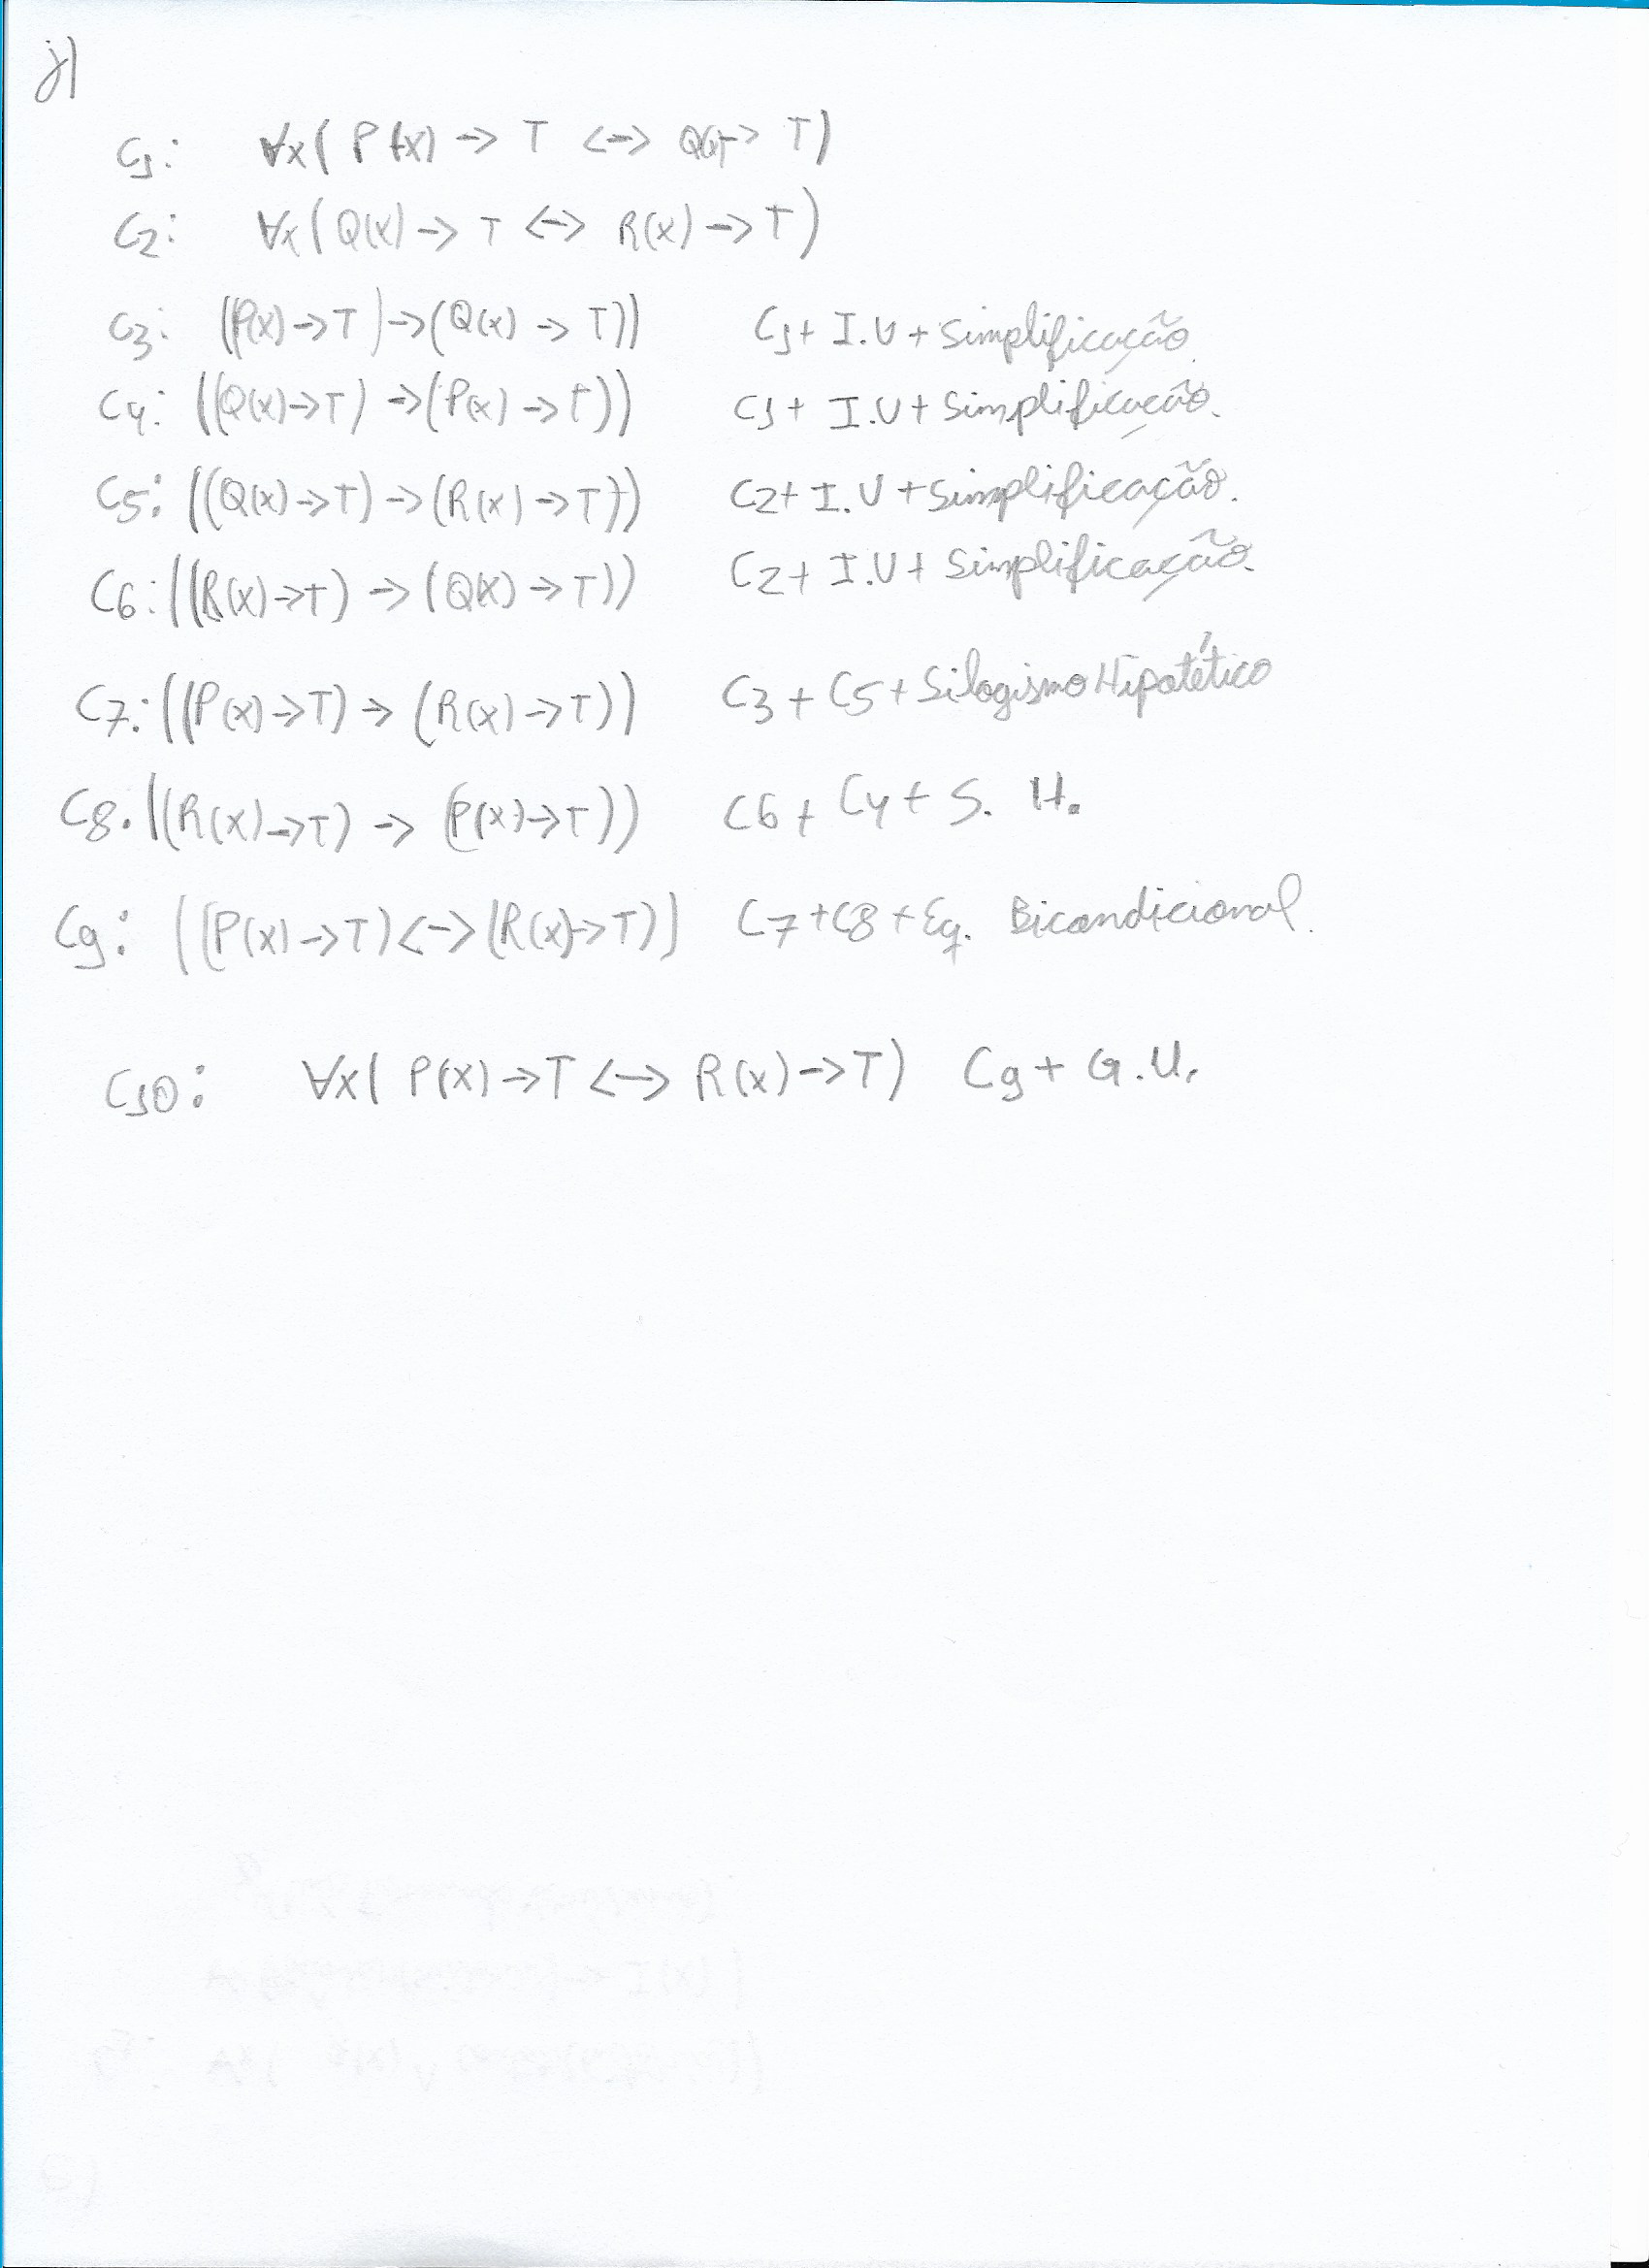 j)
C1: ∀x( P(x) -> T <-> Q(x)-> T)
C2: ∀x( Q(x) -> T <-> R(x) -> T)
C3: ((P(x) -> T) -> (Q(x) -> T)) C1 + I.U + Simplificação.
C4: ((Q(x) -> T) -> (P(x) -> T)) C1 + I.U + Simplificação.
C5: ((Q(x) -> T) -> (R(x) -> T)) C2 + I.U + Simplificação.
C6: ((R(x) -> T) -> (Q(x) -> T)) C2 + I.U + Simplificação.
C7: ((P(x) -> T) -> (R(x) -> T)) C3 + C5 + Silogismo Hipotético
C8: ((R(x) -> T) -> (P(x) -> T)) C6 + C4 + S. H.
C9: ((P(x) -> T) <-> (R(x) -> T)) C7 + C8 + Eq. Bicondicional.
C10: ∀x( P(x) -> T <-> R(x) -> T) C9 + G.U.